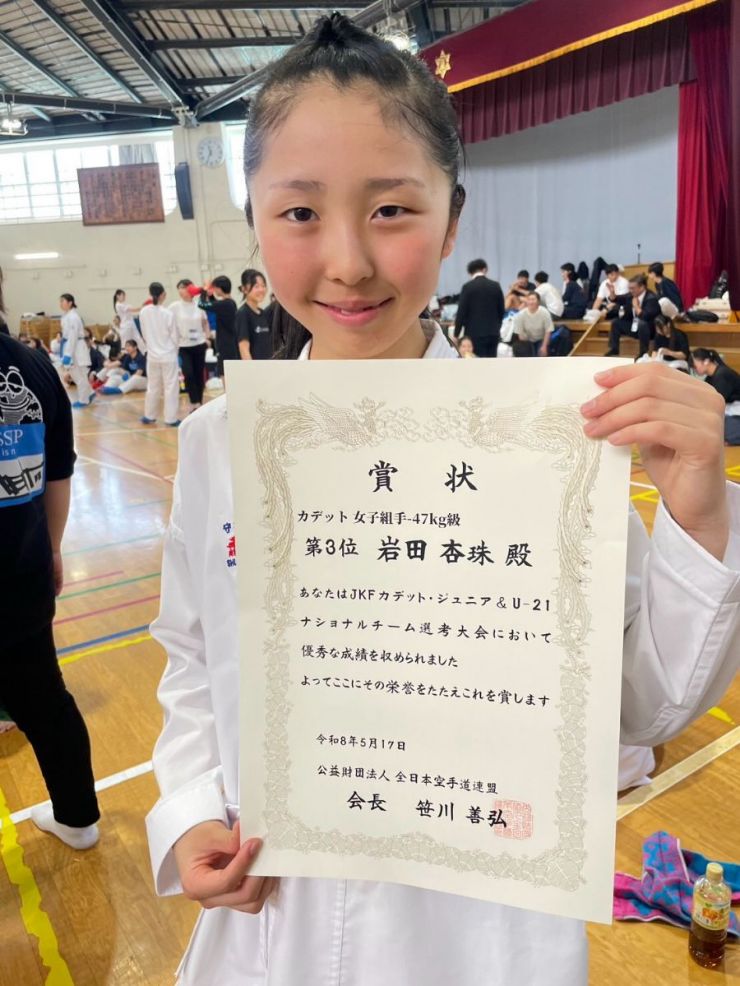 賞状
カデット 女子組手-47kg級
第3位 岩田 杏珠 殿
あなたはJKFカデット・ジュニア&U-21
ナショナルチーム選考大会において
優秀な成績を収められました
よってここにその栄誉をたたえこれを賞します
令和8年5月17日
公益財団法人 全日本空手道連盟
会長 笹川 善弘
SSP